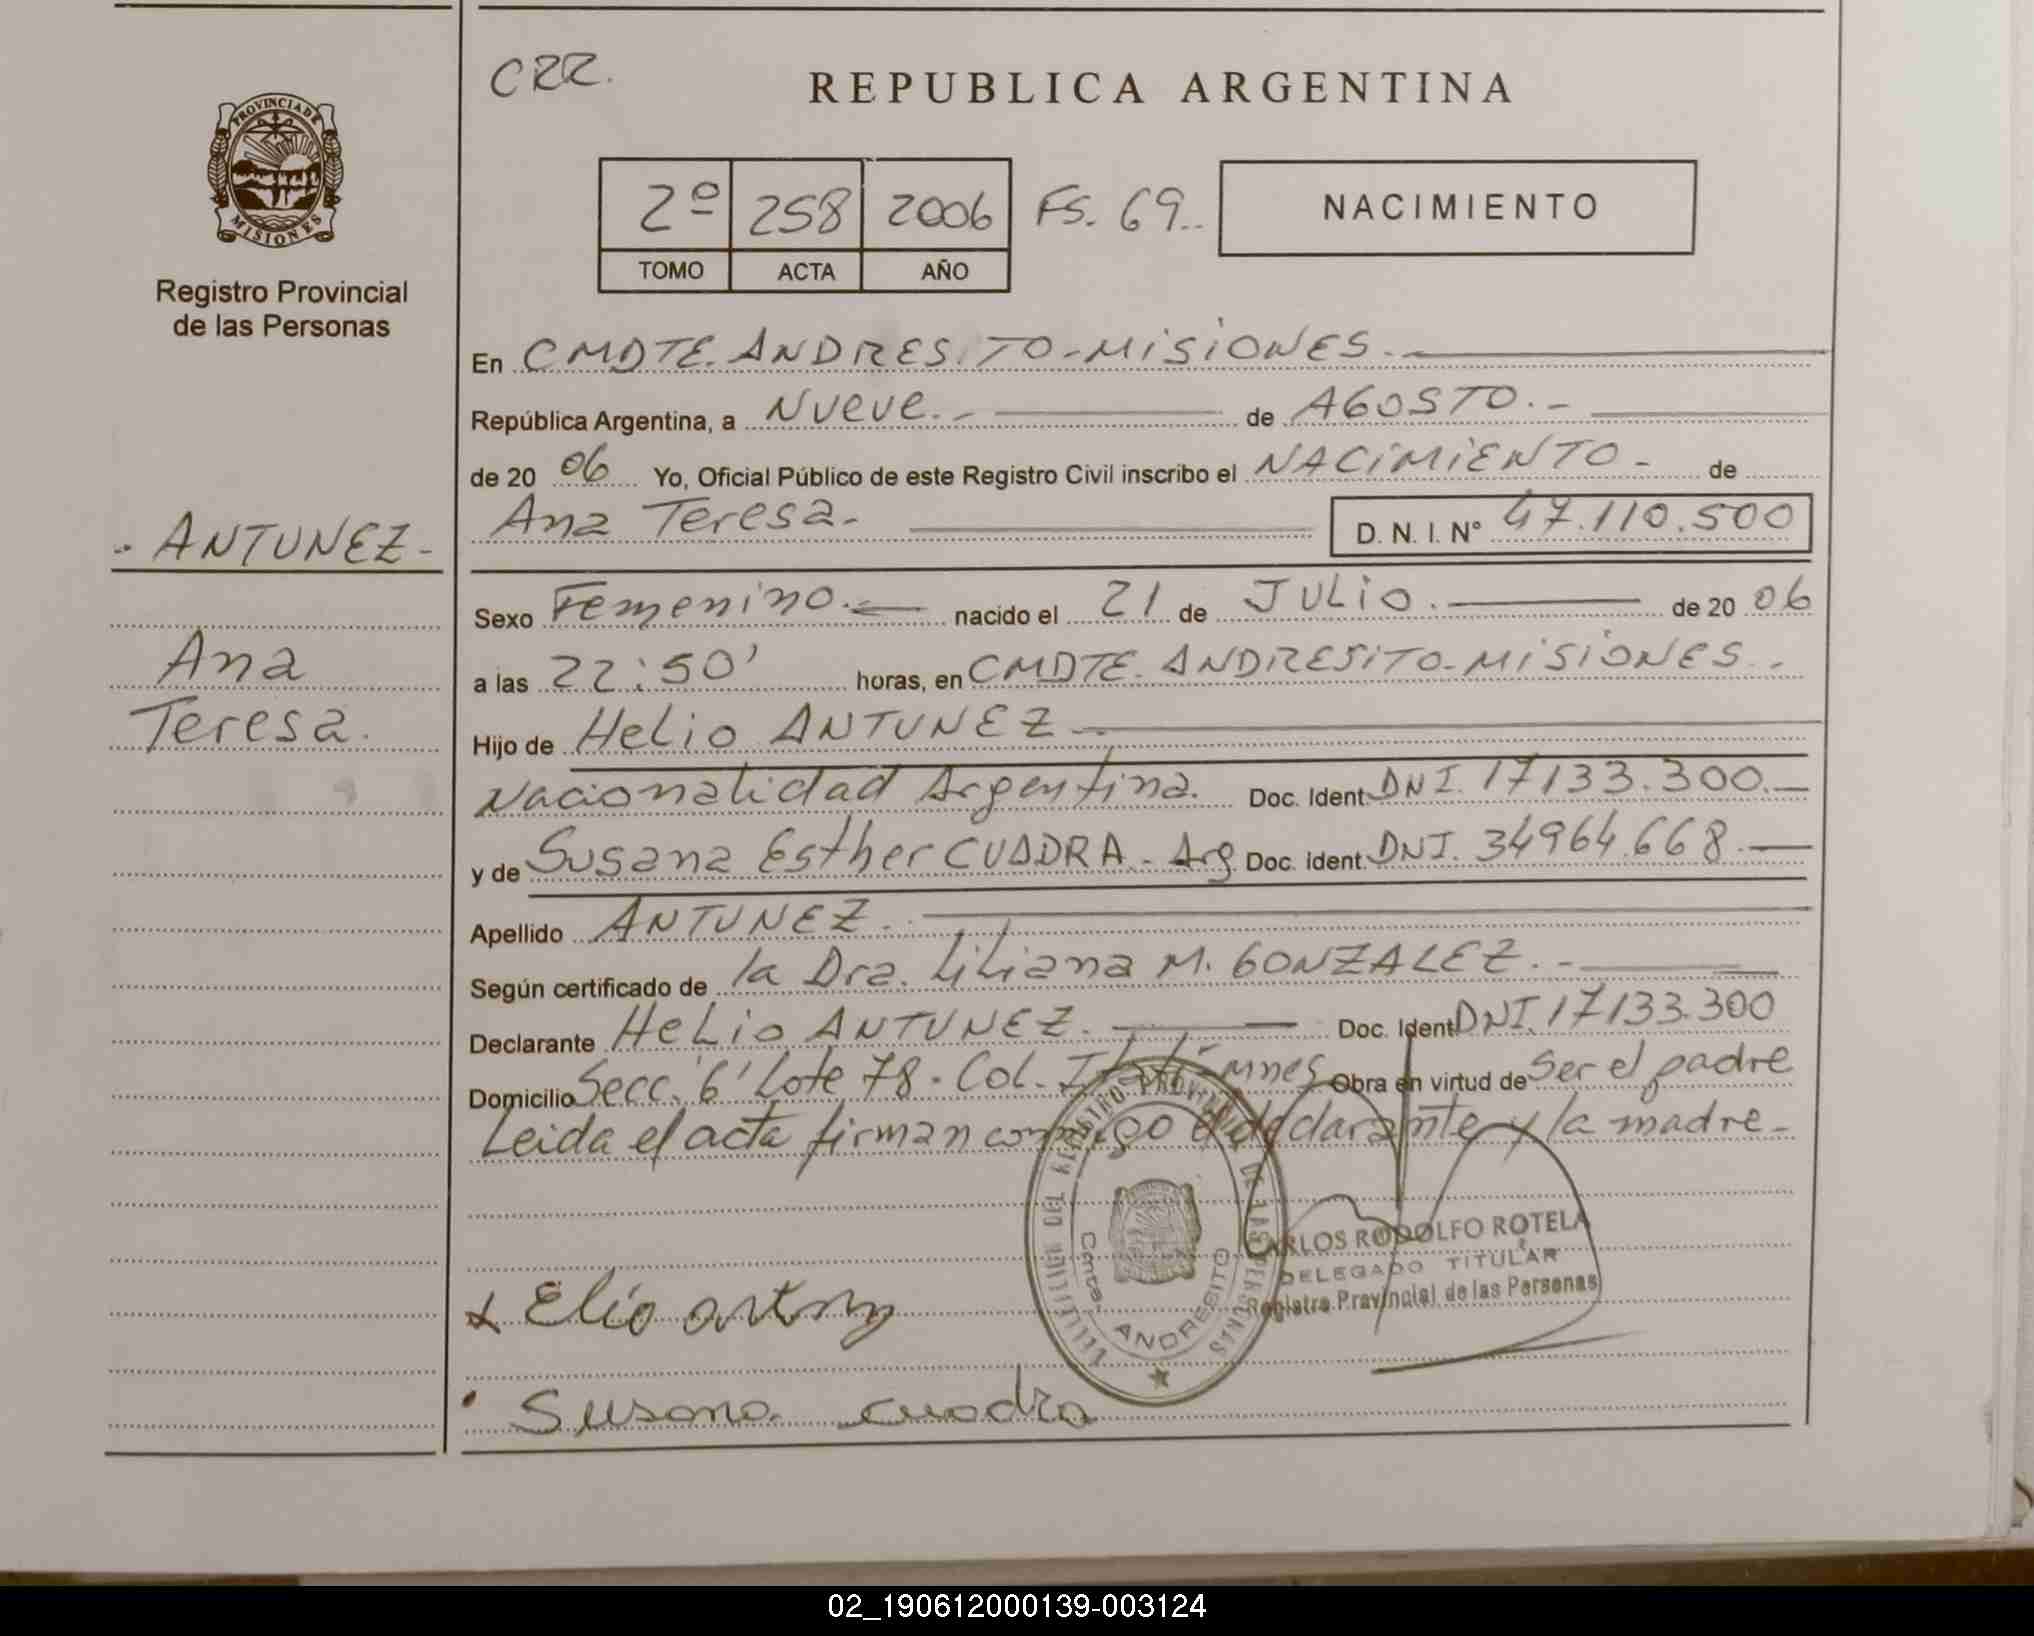 CRR.
REPUBLICA ARGENTINA
PROVINCIA DE
MISIONES
Registro Provincial
de las Personas
2º 258 2006 FS. 69..
TOMO ACTA AÑO
NACIMIENTO
En CMDTE. ANDRESITO-MISIONES.
República Argentina, a Nueve.- de AGOSTO.-
de 20 06 Yo, Oficial Público de este Registro Civil inscribo el NACIMIENTO - de
- ANTUNEZ -
Ana Teresa.- D. N. I. Nº 47.110.500
Sexo Femenino. nacido el 21 de JULIO. de 20 06
Ana
Teresa.
a las 22:50' horas, en CMDTE. ANDRESITO-MISIONES..
Hijo de Helio ANTUNEZ
Nacionalidad Argentina. Doc. Ident. DNI. 17133.300.-
y de Susana Esther CUADRA - Arg. Doc. ident. DNI. 34964.668.-
Apellido ANTUNEZ.
Según certificado de la Dra. Liliana M. GONZALEZ.-
Declarante HELio ANTUNEZ. Doc. Ident. DNI. 17133.300
Domicilio Secc. '6' Lote 78 - Col. Obra en virtud de Ser el padre
Leida el acta firman conmigo el declarante y la madre-
DEL REGISTRO PROVINCIAL DE LAS PERSONAS
Cmte. ANDRESITO
CARLOS RODOLFO ROTELA
DELEGADO TITULAR
Registro Provincial de las Personas
x Elio
Susana cuadra
02_190612000139-003124